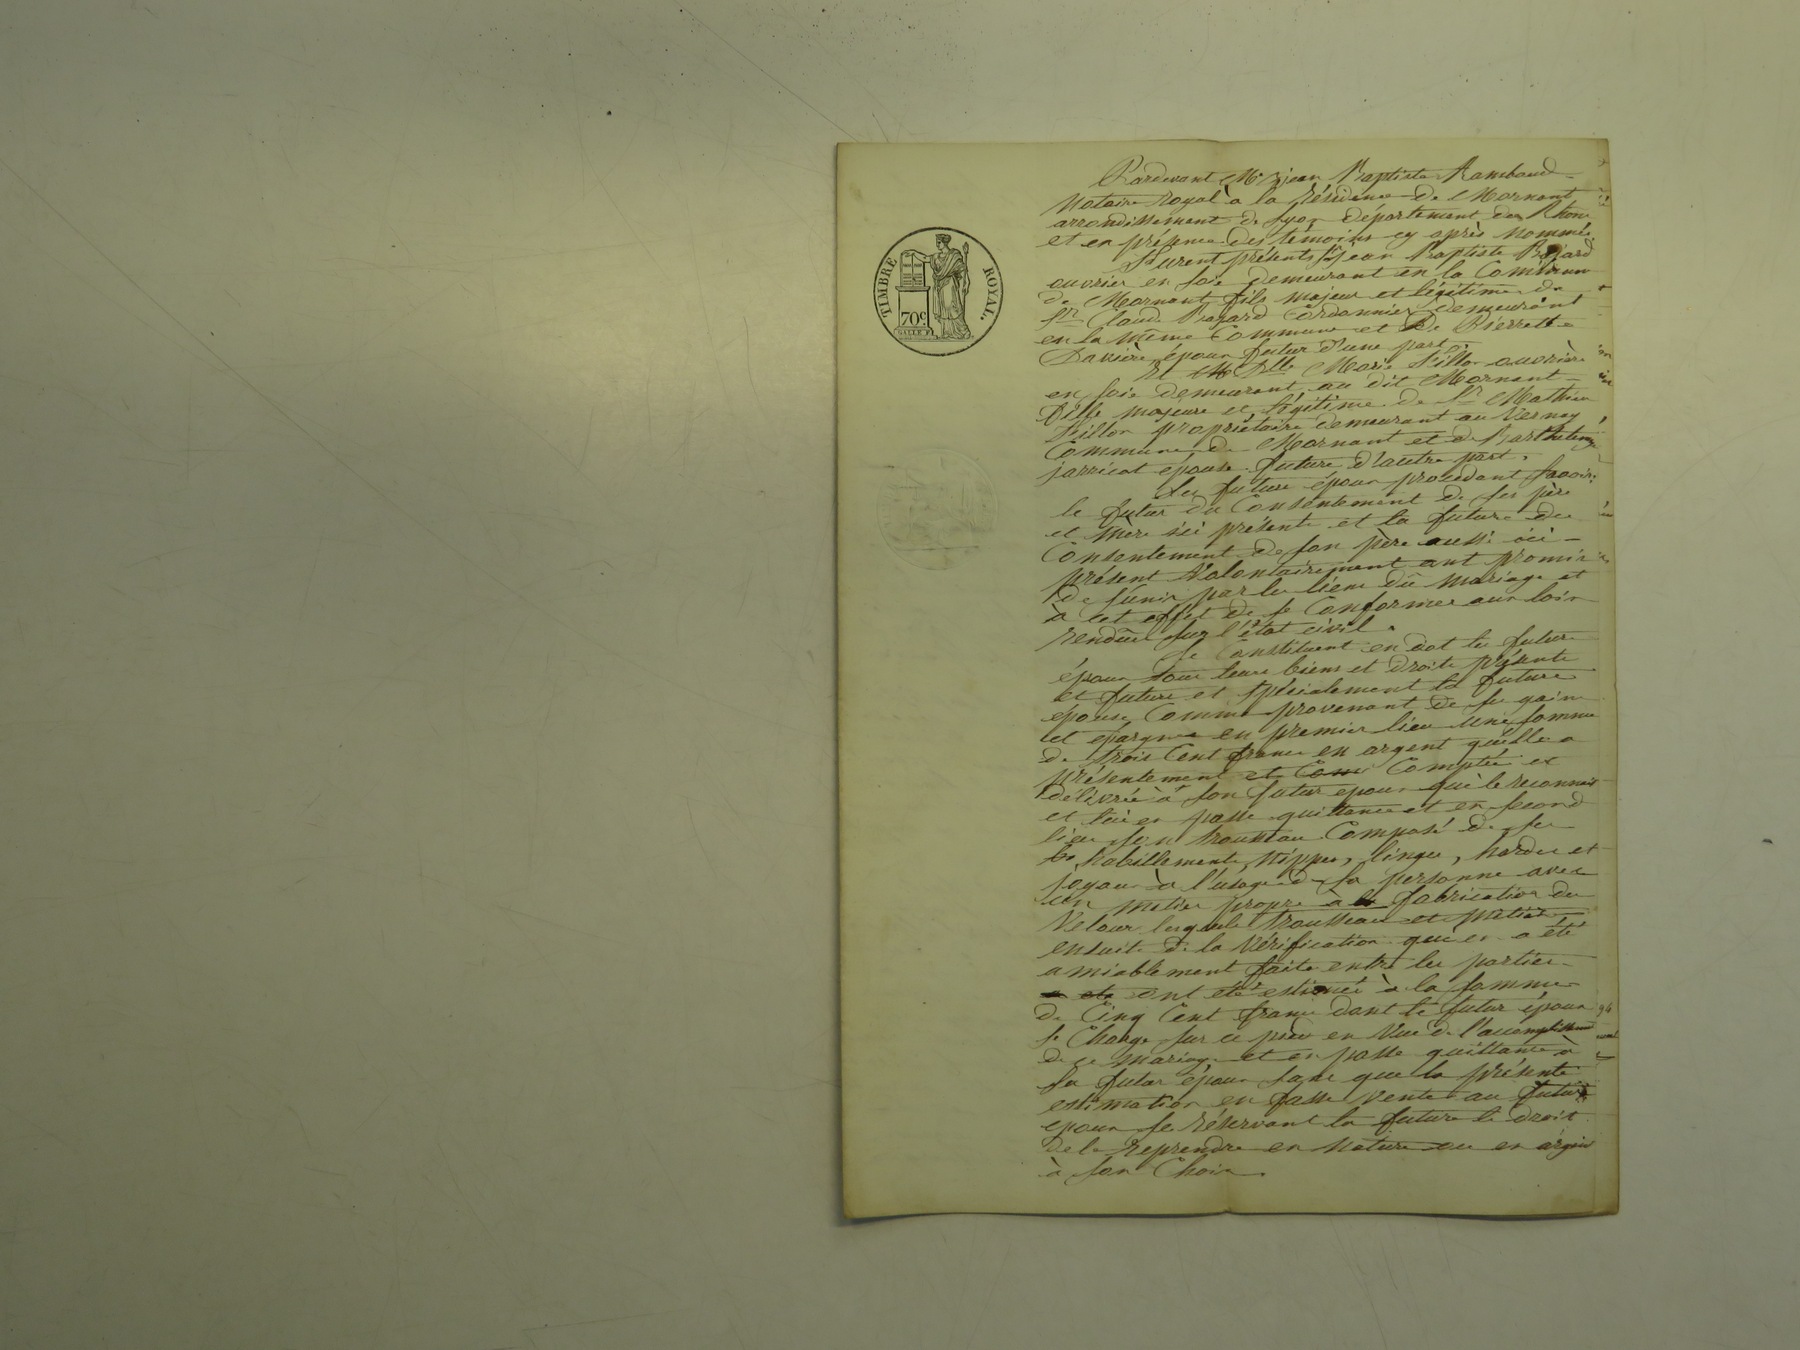 TIMBRE ROYAL.
70c
Pardevant Me jean Baptiste Rambaud
Notaire Royal à la Résidence de Mornant
arrondissement de Lyon département du Rhone
et en présence des témoins cy après Nommés
Furent présents Sr Jean Baptiste Bazard
ouvrier en soie demeurant en la Commune
de Mornant fils majeur et légitime de
Sr Claude Bazard Cordonnier demeurant
en la même Commune et De Pierrette
épour futur d'une part,
Et Dlle Marie Pillon ouvrière
en soie demeurant au dit Mornant
fille majeure et légitime de Sr Mathieu
Pillon propriétaire demeurant au Vernay
Commune de Mornant et de
jarricot épouse future d'autre part.
Les future épour procédant savoir:
le futur du Consentement de ses père
et mère ici présents et la future du
Consentement de son père aussi ici
présent Volontairement ont promis
De s'unir par les liens du mariage et
à cet effet de se Conformer aux loix
rendues sur l'état civil.
Se Constituent en dot les future
épour tous leurs biens et droits présents
et future et spécialement la future
épouse Comme provenant de ses gains
et épargnes en premier lieu une somme
de trois Cent francs en argent qu'elle a
présentement et Comptée et
délivrée à son futur epour qui le reconnait
et lui en passe quittance et en second
lieu son trousseau Composé de ses
habillements, Nippes, linges, hardes et
joyaux à l'usage de sa personne avec
un metier propre à la fabrication du
Velour lesquels trousseau et metier
ensuite de la Vérification qui en a été
amiablement faite entre les parties
ont été estimés à la somme
de Cinq Cent francs dont le futur épour
se Charge sur ce pied en Vue de l'accomplissement
de ce mariage et en passe quittance à
sa futur épour sans que la présente
estimation en fasse Vente au futur
epour se réservant la future le droit
de le Reprendre en Nature ou en argent
à son Choix.